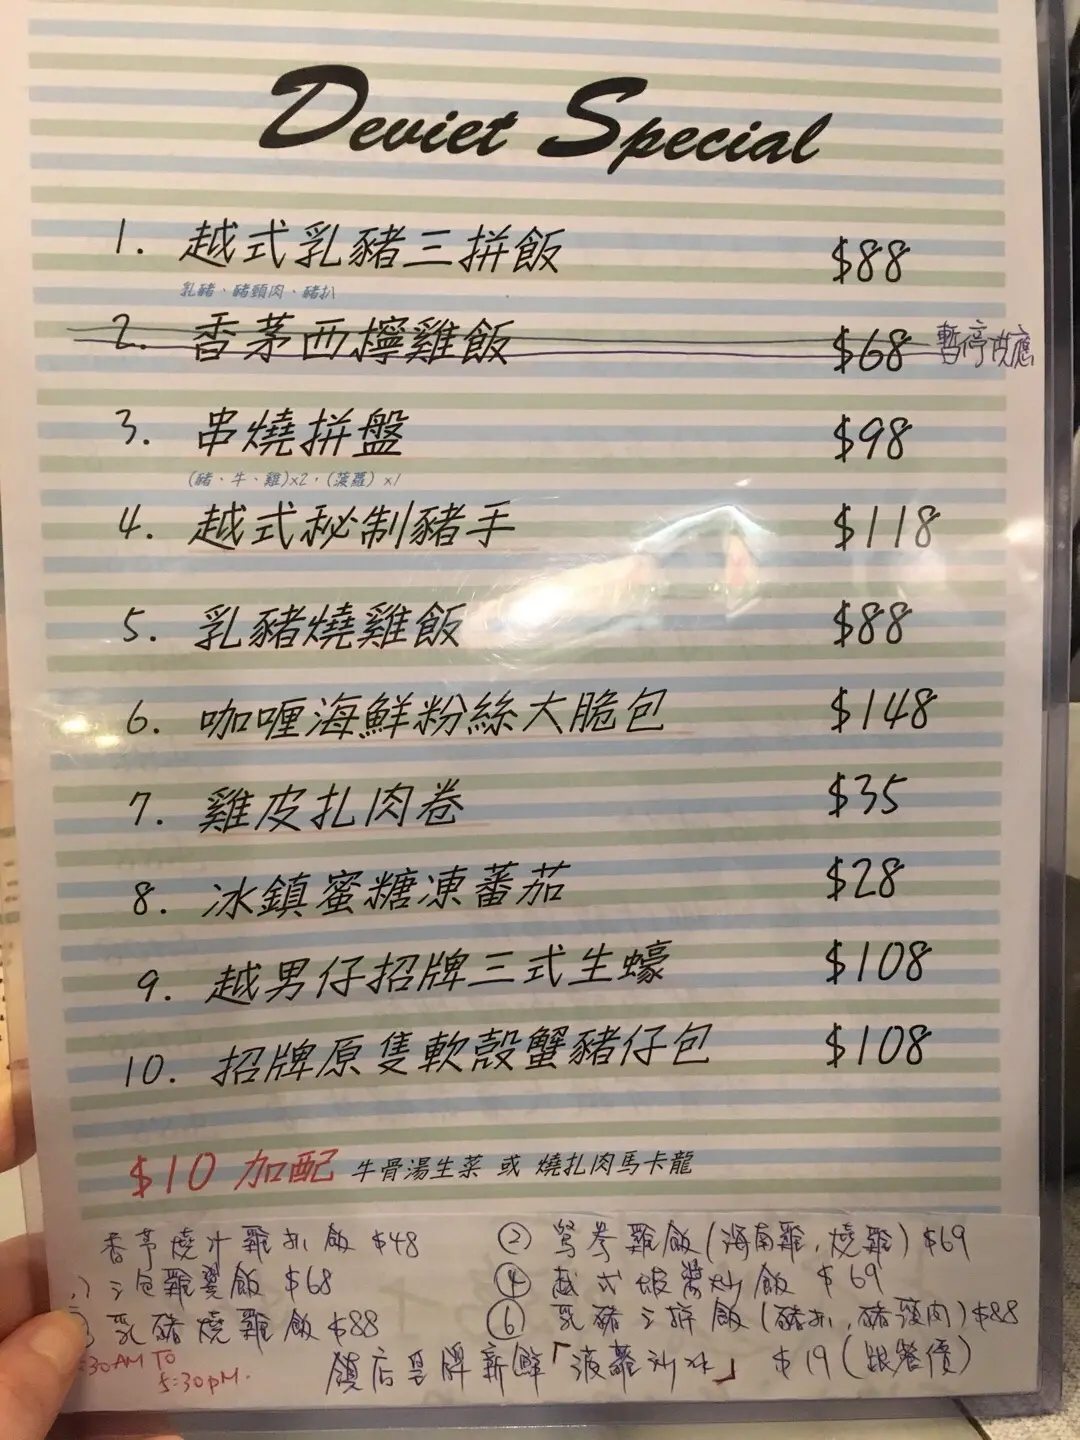 Deviet Special
1. 越式乳豬三拼飯 $88
乳豬、豬頸肉、豬扒
2. 香茅西檸雞飯 $68 暫停供應
3. 串燒拼盤 $98
(豬、牛、雞)x2，(菠蘿) x1
4. 越式秘制豬手 $118
5. 乳豬燒雞飯 $88
6. 咖喱海鮮粉絲大脆包 $148
7. 雞皮扎肉卷 $35
8. 冰鎮蜜糖凍蕃茄 $28
9. 越男仔招牌三式生蠔 $108
10. 招牌原隻軟殼蟹豬仔包 $108
$10 加配 牛骨湯生菜 或 燒扎肉馬卡龍
香茅燒汁雞扒飯 $48 ② 鴛鴦雞飯(海南雞,燒雞) $69
三色雞翼飯 $68 ④ 越式蝦醬炒飯 $69
乳豬燒雞飯 $88 ⑥ 乳豬三拼飯(豬扒,豬頸肉) $88
:30AM TO
5:30PM.
鎮店皇牌新鮮「菠蘿沙冰」 $19 (跟餐價)